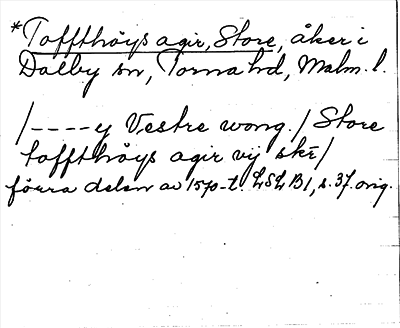 *Toffthöys agir, Store, åker i
Dalby sn, Torna hd, Malm. l.
/----y Vestre wong./ Store
toffthöys agir vij skē/
förra delen av 1570-t. LSLB1, s. 37. orig.